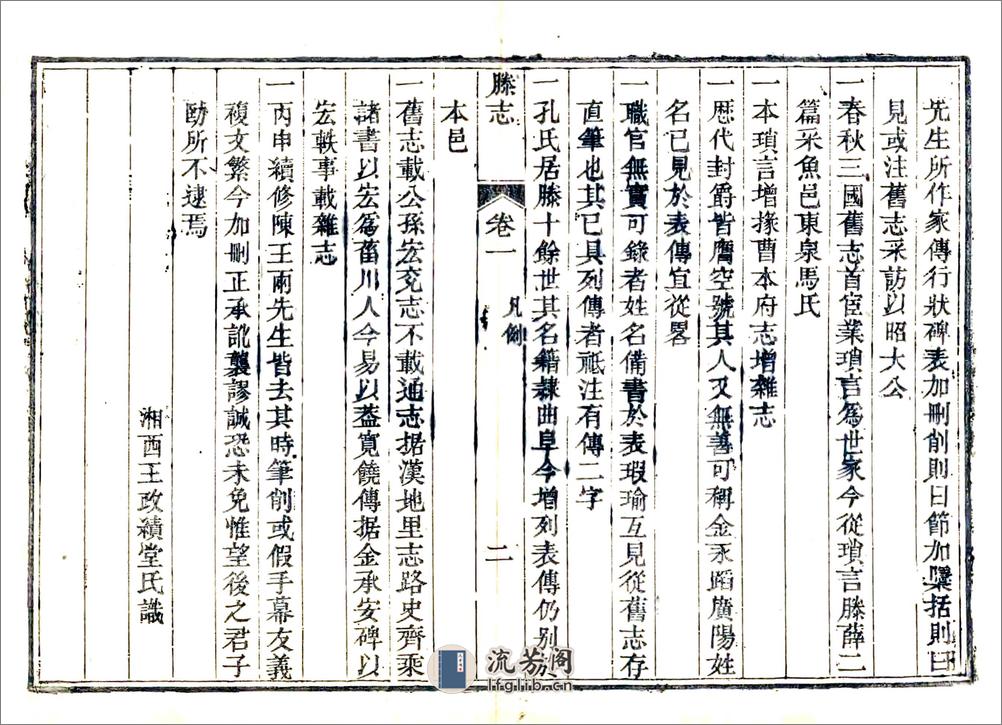 先生所作家傳行狀碑表加刪削則曰節加檃括則曰
見或注舊志采訪以昭大公
一春秋三國舊志首宦業瑣言爲世家今從瑣言滕薛二
篇采魚邑東泉馬氏
一本瑣言增掾曹本府志增雜志
一歷代封爵皆膺空號其人又無善可稱金永蹈廣陽姓
名已見於表傳宜從畧
一職官無實可錄者姓名備書於表瑕瑜互見從舊志存
直筆也其已具列傳者祗注有傳二字
一孔氏居滕十餘世其名籍隸曲阜今增列表傳仍别於
滕志
卷一
凡例
二
本邑
一舊志載公孫宏兗志不載通志据漢地里志路史齊乘
諸書以宏爲菑川人今易以葢寬饒傳据金承安碑以
宏軼事載雜志
一丙申續修陳王兩先生皆去其時筆削或假手幕友義
複文繁今加刪正承訛襲謬誠恐未免惟望後之君子
助所不逮焉
湘西王政績堂氏識
流芳阁
lfglib.cn